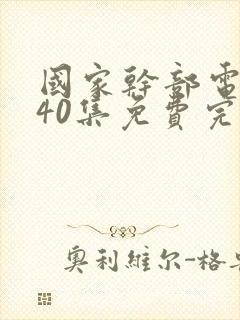 國家幹部電
40集免費完
奧利維尔-格